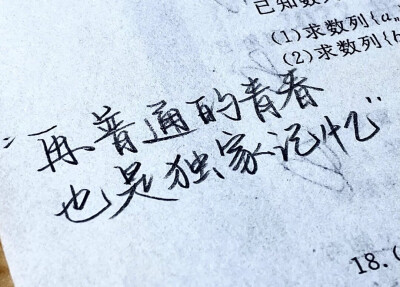 已知数
(1)求数列{aₙ
(2)求数列{b
“再普通的青春
也是独家记忆”
18.(